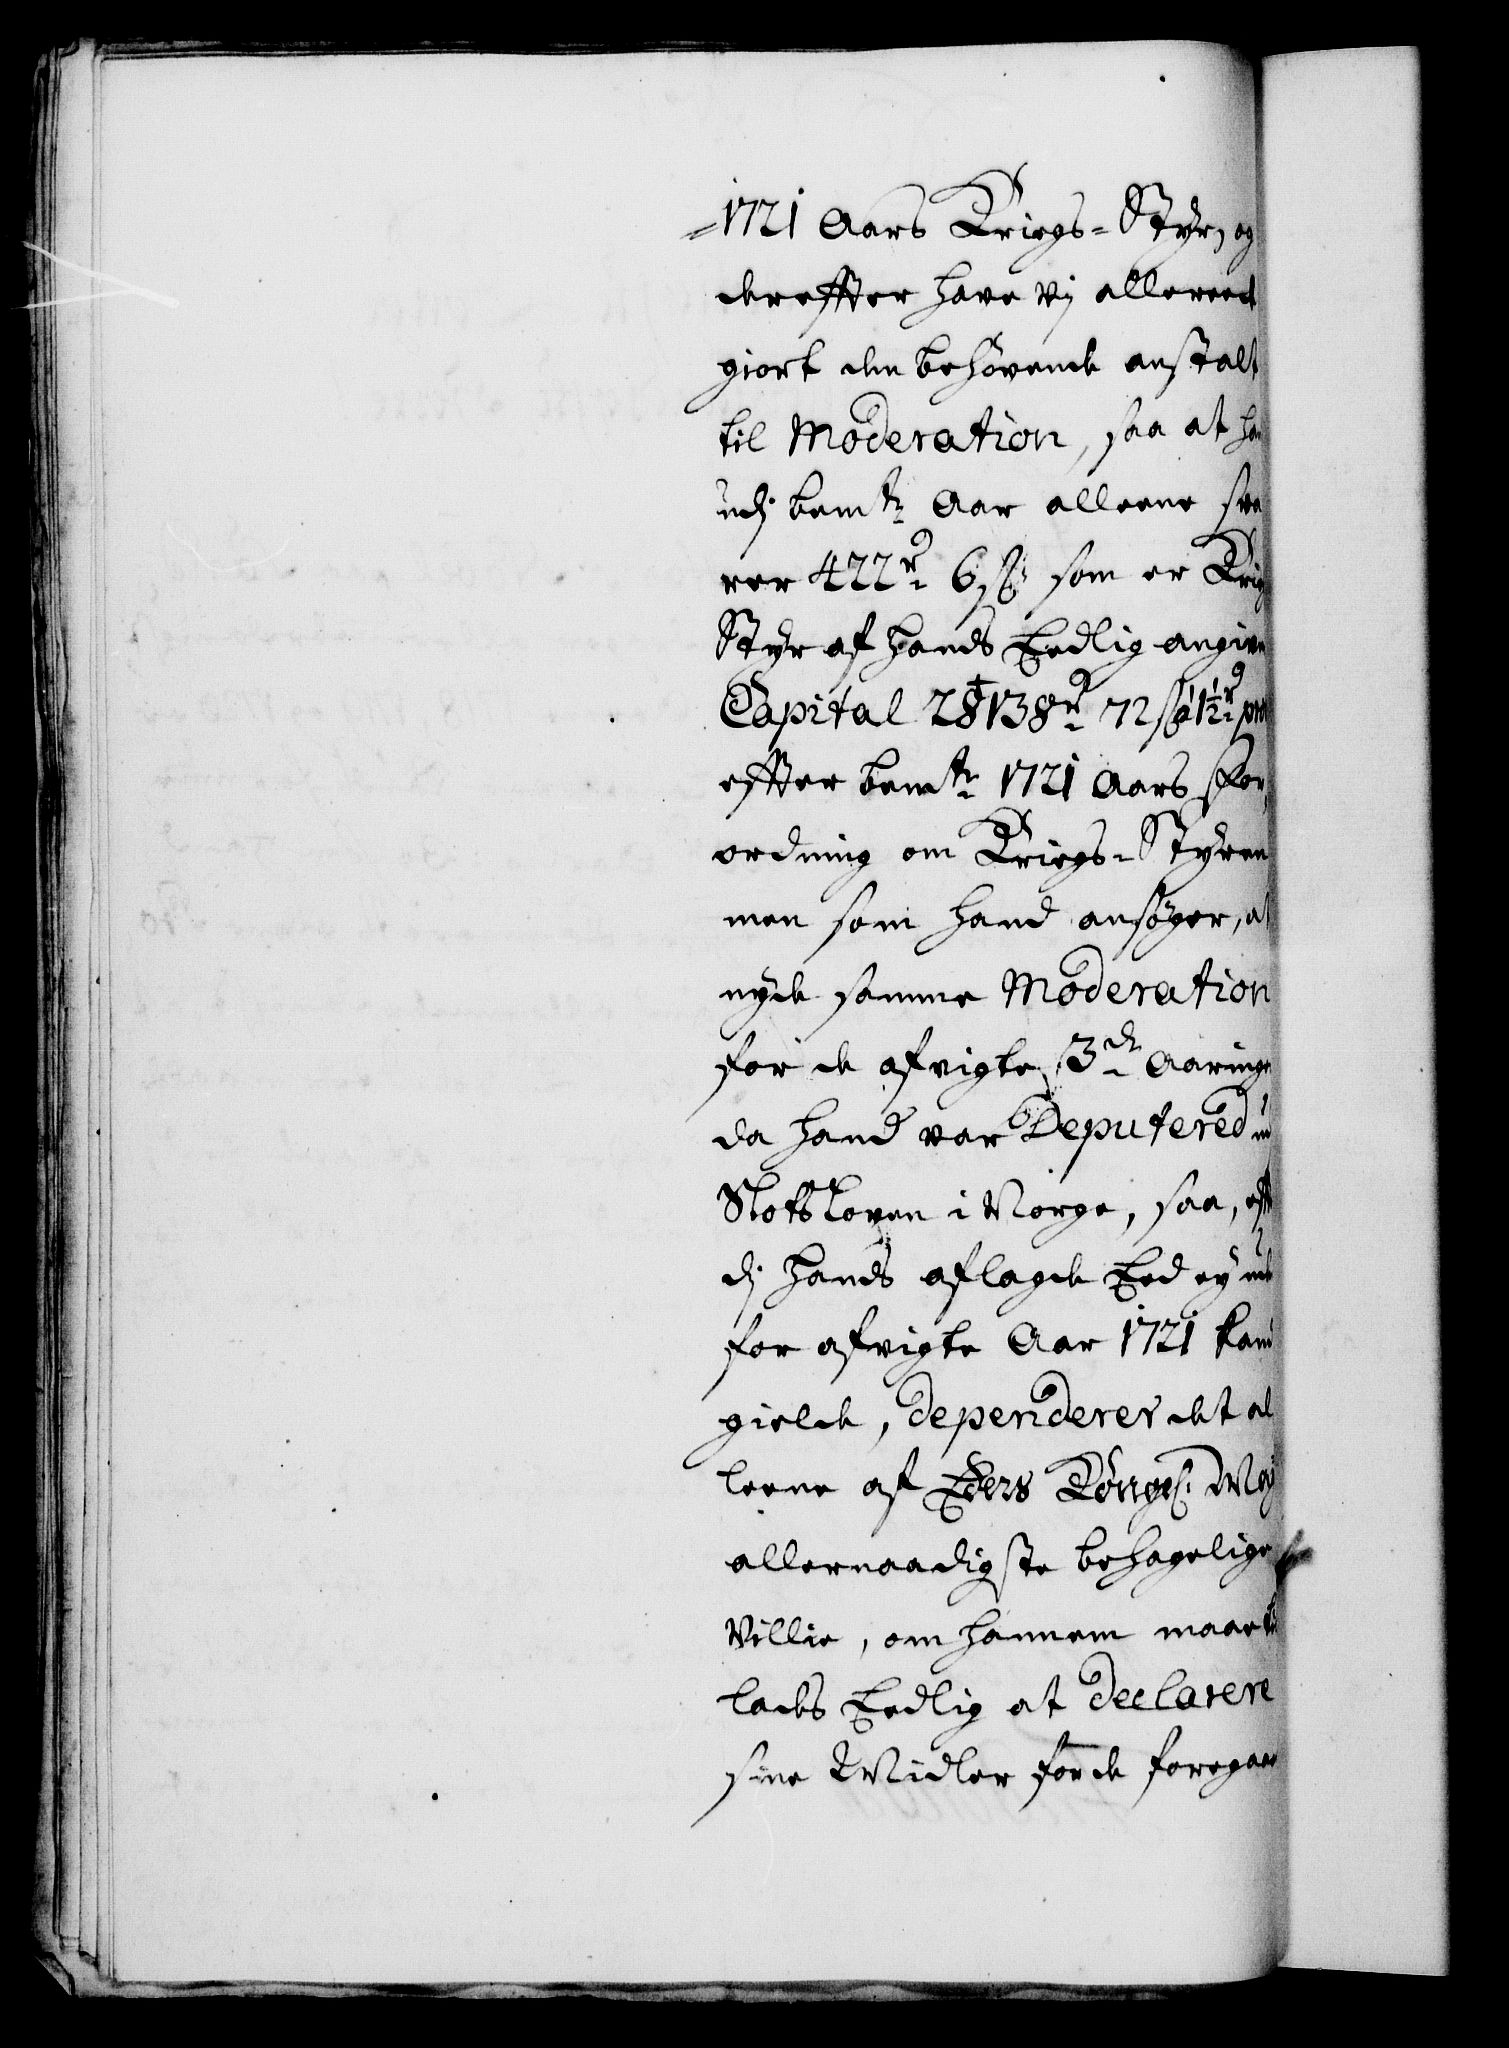 1721 Aars Kriegs-Styr, og
dereffter have vj allereed
giort den behøvende anstalt
til Moderation, saa at
udj bemte Aar alleene sva
rer 422 rd 6 ß som er Krig
Styr af hands Eedlig angivn
Capital 28138 rd 72 ß à 1½ rd pro
effter bemte 1721 Aars For,
ordning om Kriegs-Styren
men som hand ansøger, at
nyde samme Moderation
for de afvigte 3de Aaringe
da hand var Deputered ud
Slotsloven i Norge, saa, eff
dj hands aflagde Eed ey ude
for afvigte Aar 1721 kand
gielde, dependerer det al
leene af Eders Kongel. May
allernaadigste behagelige
Villie, om hannem maae til
lades Eedlig at declarere
sine Midler for de foregaae